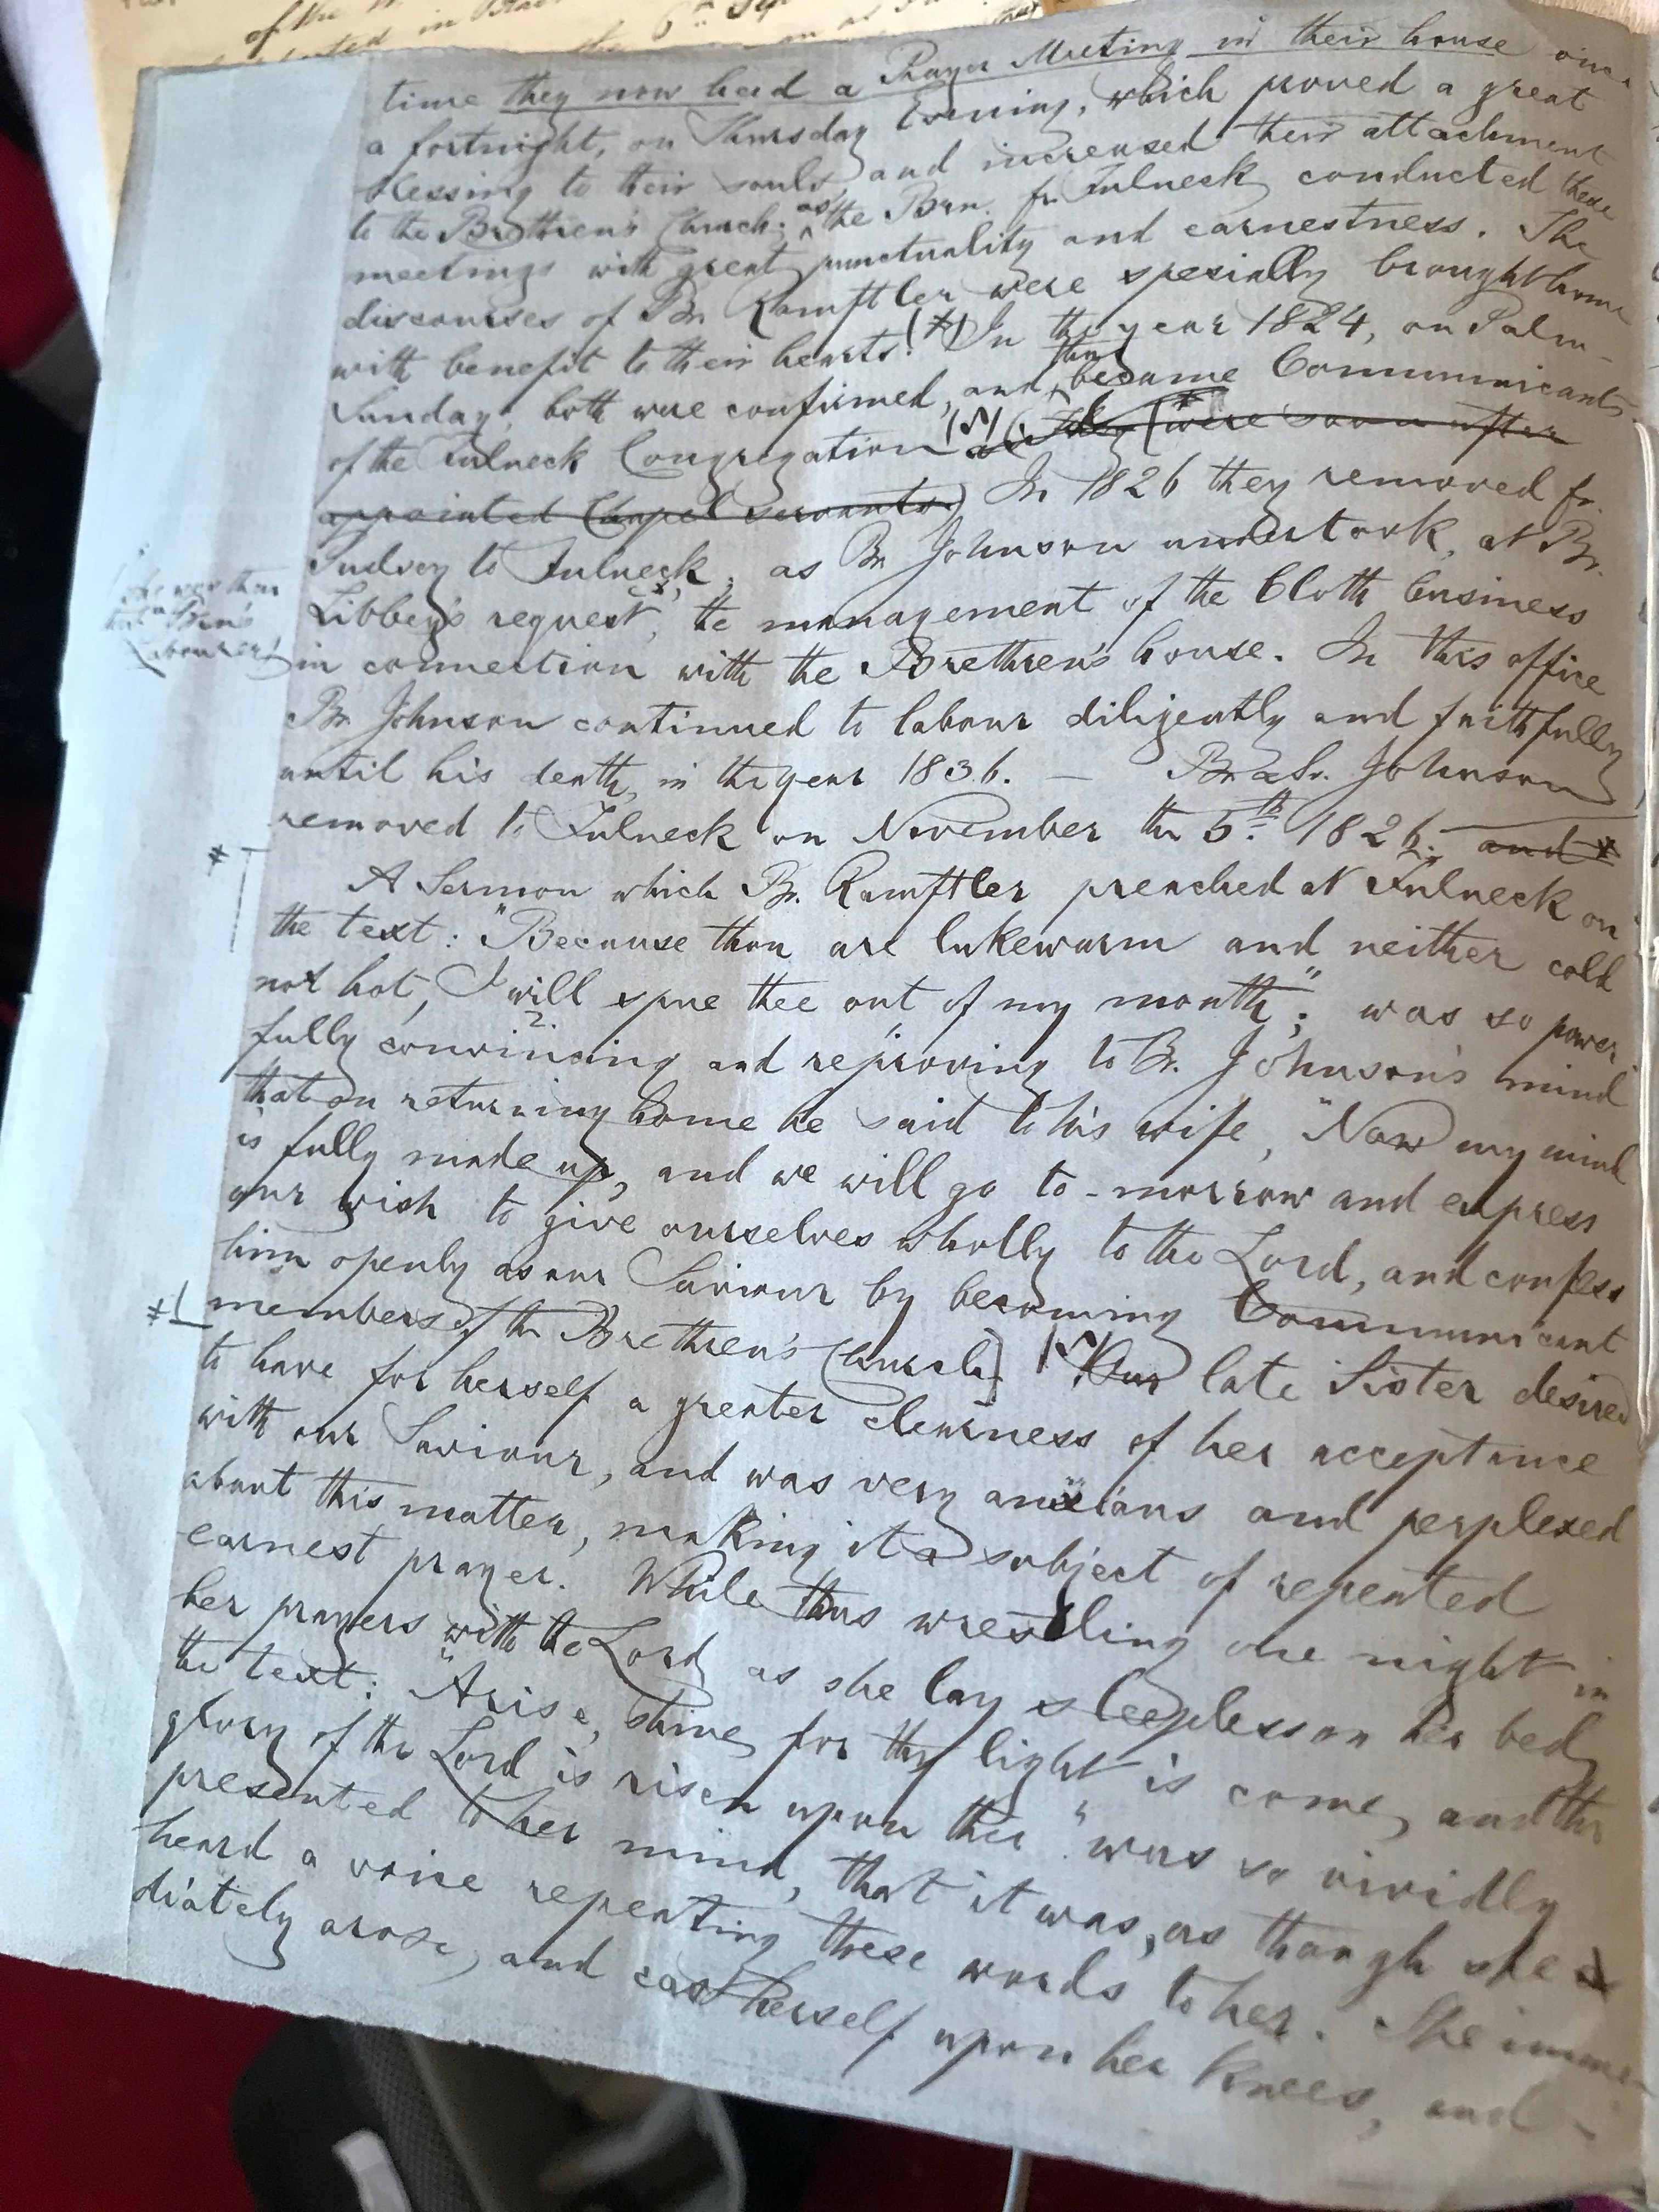 of the
in
time they now had a Prayer Meeting in their house once
a fortnight, on Thursday Evening, which proved a great
blessing to their souls, and increased their attachment
to the Brethren's Church; as the Brn. fr. Fulneck conducted these
meetings with great punctuality and earnestness. The
discourses of Br. Ramftler were spesially brought home
with benefit to their hearts. (*) In the year 1824, on Palm-
Sunday, both were confirmed, and then became Communicants
of the Fulneck Congregation were soon after
appointed Chapel servants.) In 1826 they removed fr.
Pudsey to Fulneck, as Br. Johnson undertook, at Br.
Libbey's request, the management of the Cloth business
(he was then
the Brn's
Labourer)
in connection with the Brethren's house. In this office
Br. Johnson continued to labour diligently and faithfully
until his death, in the year 1836. — Br. & Sr. Johnson
removed to Fulneck on November the 5th. 1826. and *
*
A Sermon which Br. Ramftler preached at Fulneck on
the text: "Because thou are lukewarm and neither cold
nor hot, I will spue thee out of my mouth"; was so power
fully convincing and reproving to Br. Johnson's mind
that on returning home he said to his wife, "Now my mind
is fully made up, and we will go to-morrow and express
our wish to give ourselves wholly to the Lord, and confess
him openly as our Saviour by becoming Communicant
* members of the Brethren's Church] Our late Sister desired
to have for herself a greater clearness of her acceptance
with our Saviour, and was very anxious and perplexed
about this matter, making it a subject of repeated
earnest prayer. While thus wrestling one night in
her prayers with the Lord as she lay sleepless on her bed,
the text: "Arise, shine, for thy light is come, and the
glory of the Lord is risen upon thee" was so vividly
presented to her mind, that it was, as though she
heard a voice repeating these words to her. She imme-
diately arose, and cast herself upon her knees, and -